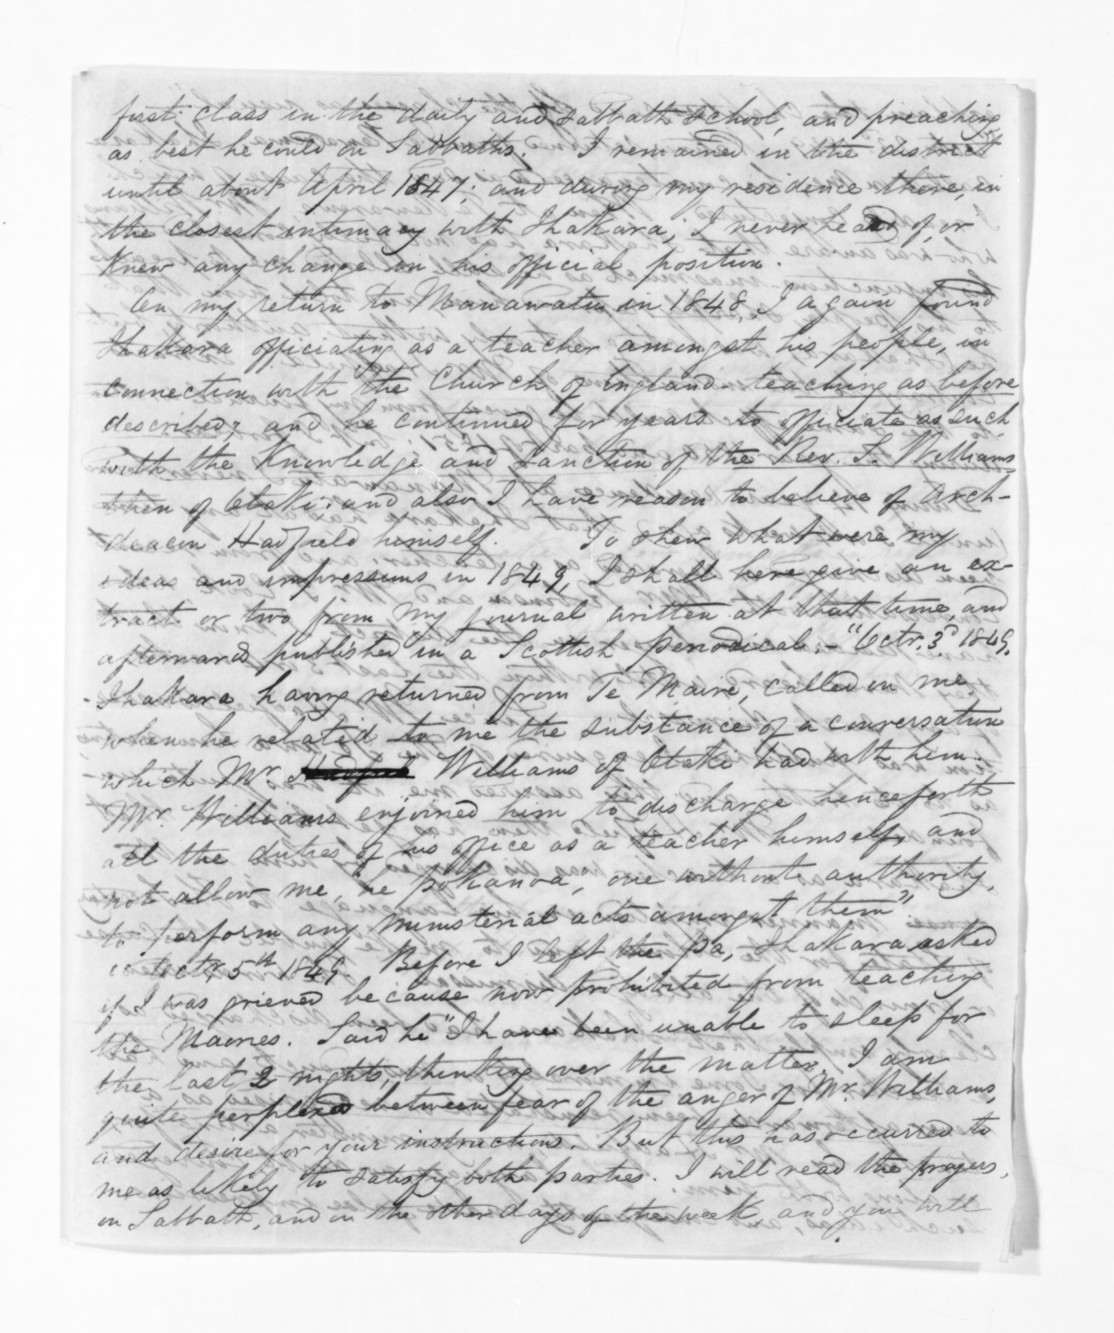 first class in the daily and Sabbath School, and preaching
as best he could on Sabbaths. I remained in the district
until about April 1847; and during my residence there, in
the closest intimacy with Ihakara, I never heard of, or
knew any change in his official position.
On my return to Manawatu in 1848, I again found
Ihakara officiating as a teacher amongst his people, in
connection with the Church of England teaching as before
described; and he continued for years to officiate as such
with the knowledge and sanction of the Rev. S. Williams,
then of Otaki: and also I have reason to believe of Arch-
deacon Hadfield himself. To shew what were my
ideas and impressions in 1849, I shall here give an ex-
tract or two from my journal written at that time, and
afterward published in a Scottish periodical:- "Octr. 3d. 1849.
-Ihakara having returned from Te Maire, called on me,
when he related to me the substance of a conversation
which Mr. Williams of Otaki had with him.
Mr. Williams enjoined him to discharge henceforth
all the duties of his office as a teacher himself, and
not allow me, he pokanoa, one without authority,
to perform any ministerial acts amongst them",
"Octr 5th 1849 Before I left the pa, Ihakara asked
if I was grieved because now prohibited from teaching
the Maories. Said he "I have been unable to sleep for
the last 2 nights, thinking over the matter. I am
quite perplexed between fear of the anger of Mr. Williams,
and desire for your instructions. But this has occurred to
me as likely to satisfy both parties. I will read the prayers,
on Sabbath, and on the other days of the week, and you will